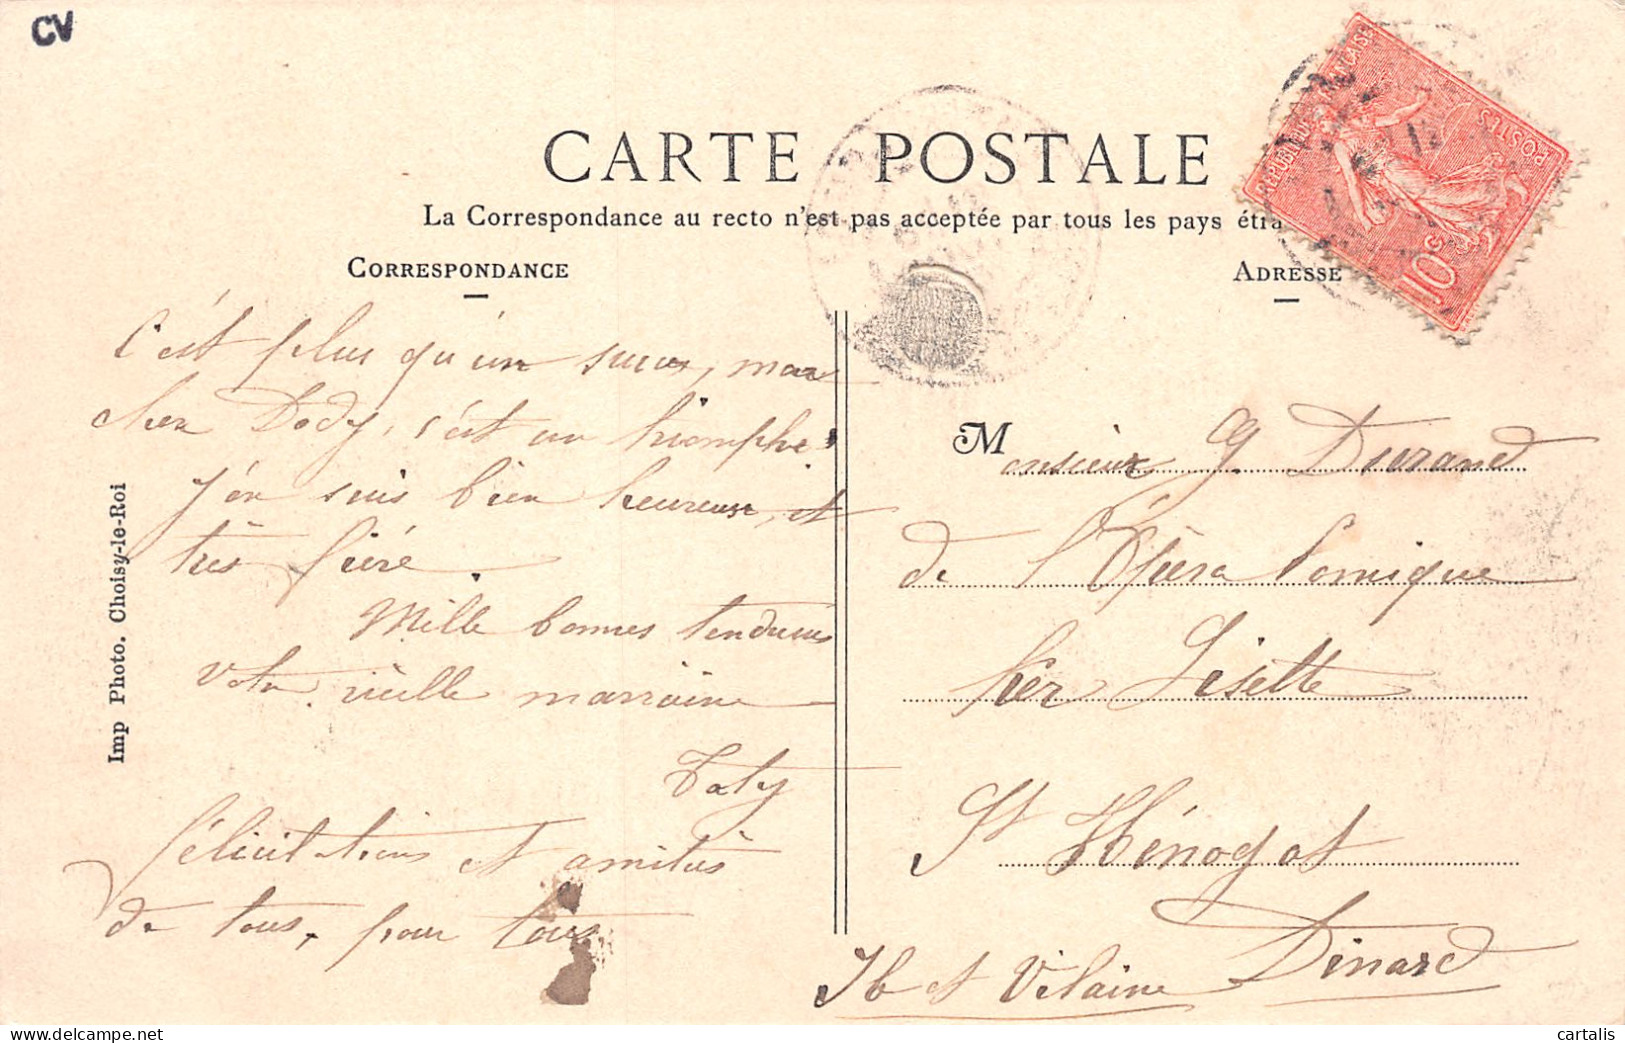 CV
CARTE POSTALE
La Correspondance au recto n'est pas acceptée par tous les pays étra
CORRESPONDANCE
ADRESSE
RÉPUBLIQUE FRANÇAISE
POSTES
10c
C'est plus qu'un succès, mon
cher Dody, c'est un triomphe!
J'en suis bien heureuse, et
très fière.
Mille bonnes tendresses
Votre vieille marraine
Taty
Félicitations et amitiés
de tous, pour tous
Monsieur G Durand
de l'Opéra Comique
Ker Lisette
St Hénogat
Dinard
Ille et Vilaine
Imp Photo. Choisy-le-Roi
cartalis